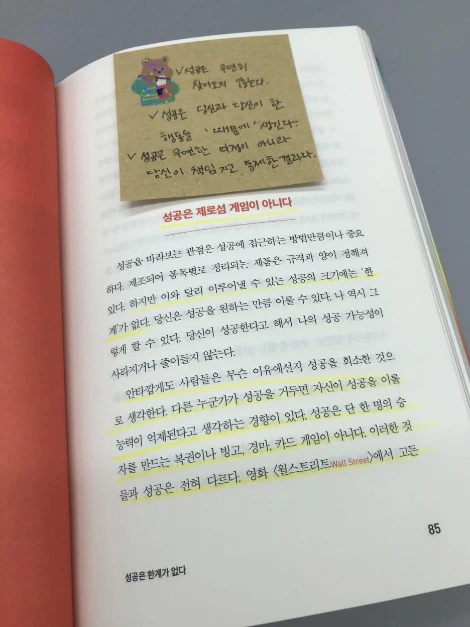 ✓ 성공은 우연히
찾아오지 않는다.
✓ 성공은 당신과 당신이 한
행동들 '때문에' 생긴다.
✓ 성공은 우연한 여정이 아니라
당신이 책임지고 통제한 결과다.
성공은 제로섬 게임이 아니다
성공을 바라보는 관점은 성공에 접근하는 방법만큼이나 중요
하다. 제조되어 품목별로 정리되는 제품은 규격과 양이 정해져
있다. 하지만 이와 달리 이루어낼 수 있는 성공의 크기에는 '한
계'가 없다. 당신은 성공을 원하는 만큼 이룰 수 있다. 나 역시 그
렇게 할 수 있다. 당신이 성공한다고 해서 나의 성공 가능성이
사라지거나 줄어들지 않는다.
안타깝게도 사람들은 무슨 이유에선지 성공을 희소한 것으
로 생각한다. 다른 누군가가 성공을 거두면 자신이 성공을 이룰
능력이 억제된다고 생각하는 경향이 있다. 성공은 단 한 명의 승
자를 만드는 복권이나 빙고, 경마, 카드 게임이 아니다. 이러한 것
들과 성공은 전혀 다르다. 영화 〈월스트리트Wall Street〉에서 고든
85
성공은 한계가 없다